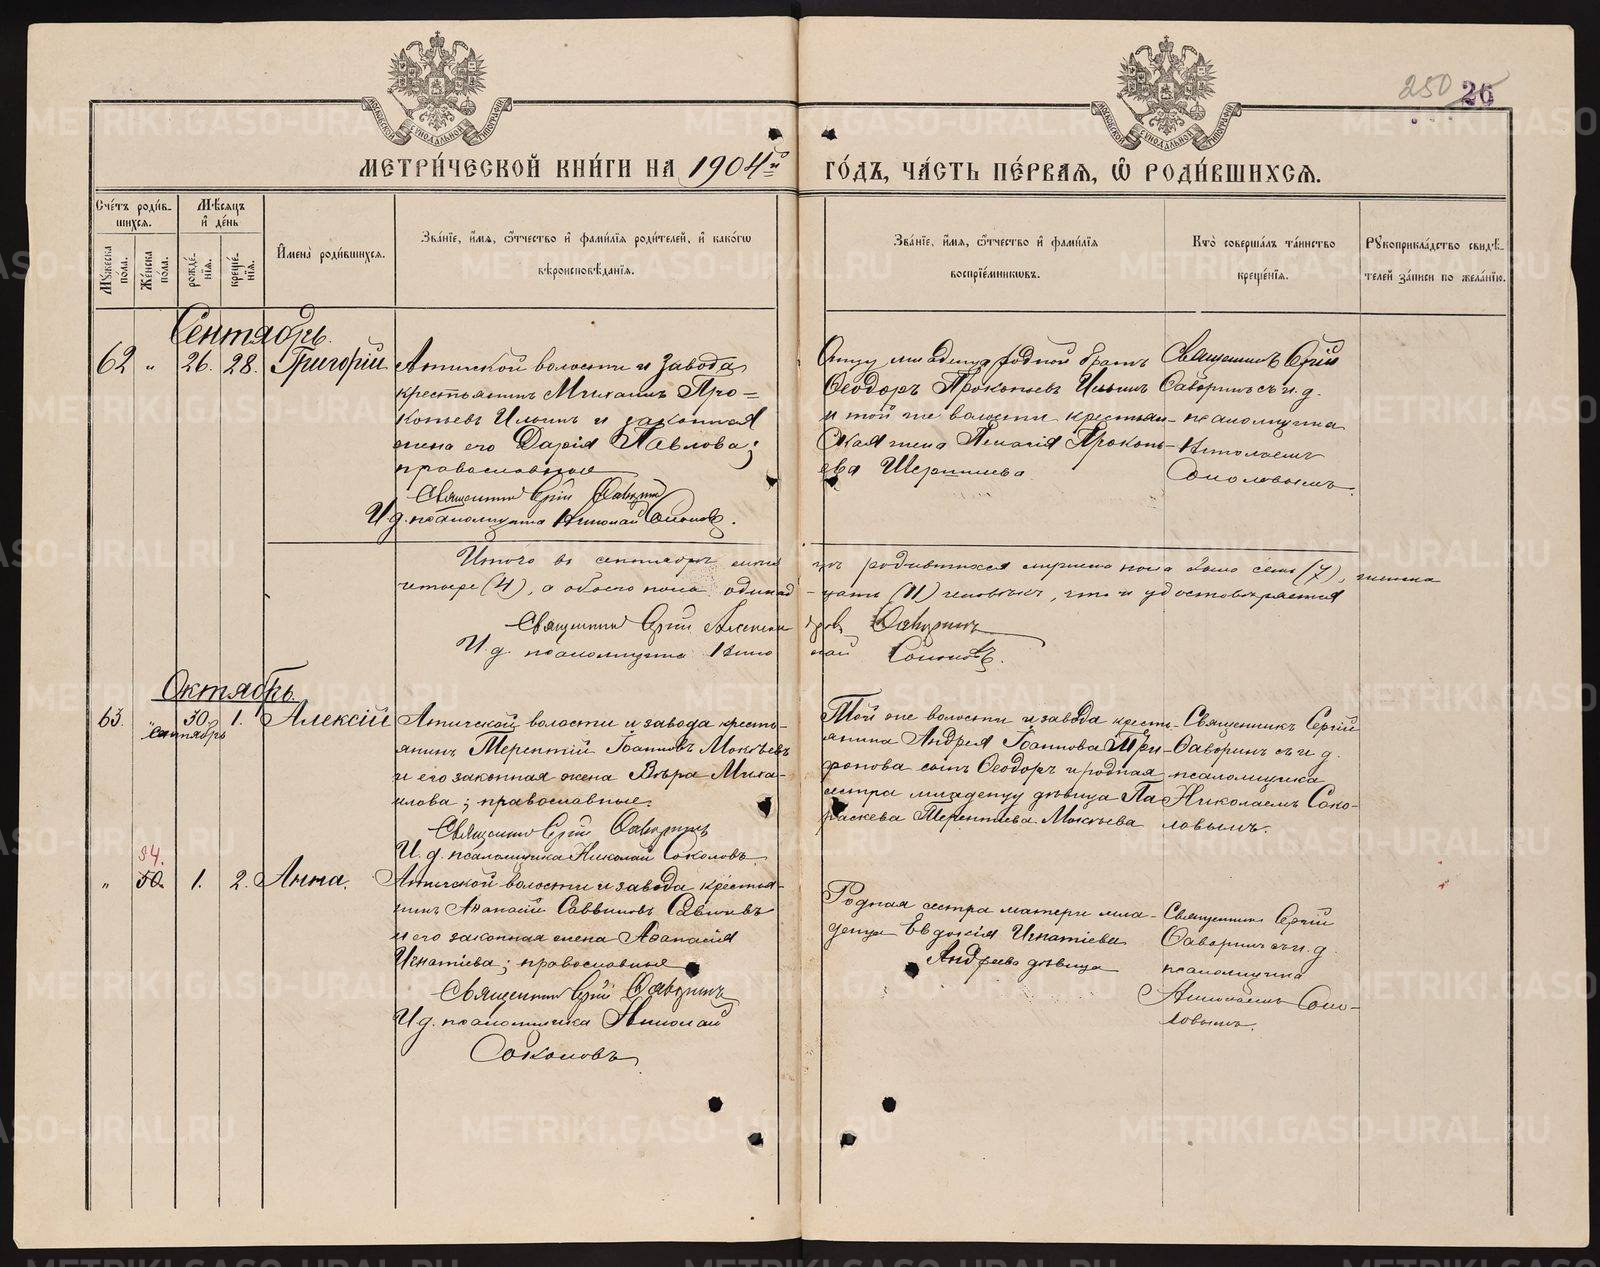 250 26
МЕТРИ́ЧЕСКОЙ КНИ́ГИ НА 1904й ГО́ДЪ, ЧА́СТЬ ПЕ́РВАЯ, Ѽ РОДИ́ВШИХСЯ.
Сче́тъ роди́в-
шихся.
Мѣ́сяцъ
и҆ де́нь
Мꙋ́жеска
пола.
Же́нска
пола.
рожде́-
нїѧ.
креще́-
нїѧ.
И҆мена̀ роди́вшихсѧ.
Зва́нїе, и҆́мѧ, ѻ҆́тчество и҆ фами́лїѧ роди́телей, и҆ како́гѡ
вѣроисповѣ́данїѧ.
Зва́нїе, и҆́мѧ, ѻ҆́тчество и҆ фами́лїѧ
воспрїе́мниковъ.
Кто̀ соверша́лъ та́инство
креще́нїѧ.
Рꙋкоприкла́дство свидѣ́-
телей за́писи по жела́нїю.
Сентябрь.
62 " 26. 28. Григорій
Артинской волости и завода
крестьянинъ Михаилъ Про=
копьевъ Ильинъ и законная
жена его Дарія Павлова;
православные
Священникъ Сергій Фаворинъ
И. д. псаломщика Николай Соколовъ.
Отцу младенца родной братъ
Ѳеодоръ Прокопьевъ Ильинъ
и той же волости крестьян-
ская жена Пелагія Прокопь-
ева
Священникъ Сергій
Фаворинъ съ и. д.
псаломщика
Николаемъ
Соколовымъ.
Итого въ сентябрѣ месяцѣ родившихся мужска пола было семь (7), женска
четыре (4), а обоего пола одинадцать (11) человѣкъ, что и удостовѣряется
Священникъ Сергій Александровъ Фаворинъ
И. д. псаломщика Николай Соколовъ.
Октябрь.
63. " 30. 1. Алексій
Сентябрь
Артинской волости и завода кресть-
янинъ Терентій Іоанновъ Мокѣевъ
и его законная жена Вѣра Миха-
илова; православные.
Священникъ Сергій Фаворинъ
И. д. псаломщика Николай Соколовъ.
Той же волости и завода кресть-
янина Андрея Іоаннова Три-
фонова сынъ Ѳеодоръ и родная
сестра младенцу дѣвица Па-
раскева Терентіева Мокѣева
Священникъ Сергій
Фаворинъ съ и. д.
псаломщика
Николаемъ Соко-
ловымъ.
54.
" 50. 1. 2. Анна.
Артинской волости и завода крестья-
нинъ Аѳанасій Саввиновъ
и его законная жена Аѳанасія
Игнатіева; православные
Священникъ Сергій Фаворинъ
И. д. псаломщика Николай
Соколовъ
Родная сестра матери мла-
денца Евдокія Игнатіева
Андреева дѣвица
Священникъ Сергій
Фаворинъ съ и. д.
псаломщика
Николаемъ Соко-
ловымъ.
METRIKI.GASO-URAL.RU